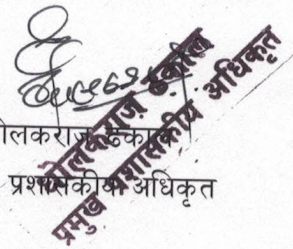 ोलकराज ढकाल
प्रशासकीय अधिकृत
गोलकराज ढकाल
प्रमुख प्रशासकीय अधिकृत